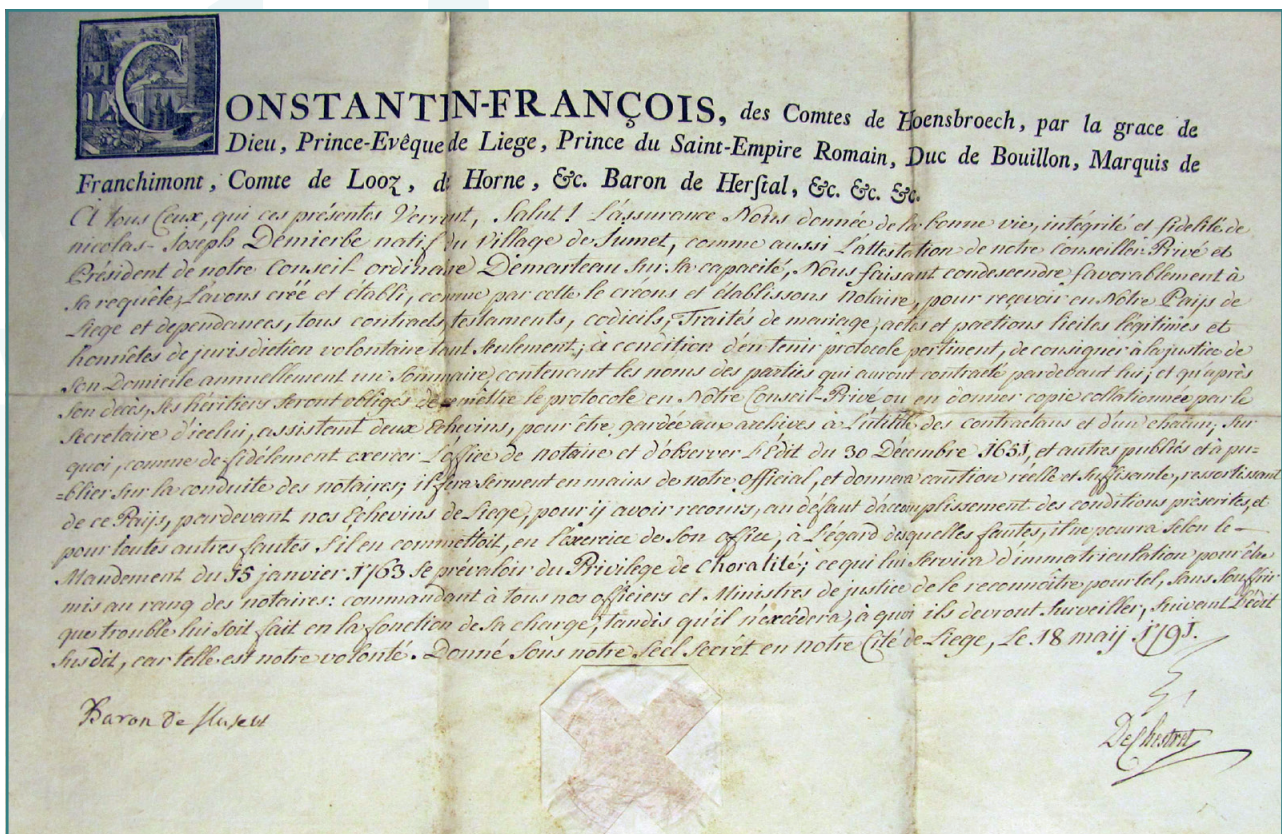 CONSTANTIN-FRANÇOIS, des Comtes de Hoensbroech, par la grace de
Dieu, Prince-Evêque de Liege, Prince du Saint-Empire Romain, Duc de Bouillon, Marquis de
Franchimont, Comte de Looz, de Horne, &c. Baron de Herſtal, &c. &c. &c.
A tous Ceux, qui ces présentes Verront, Salut! L'assurance Nous donnée de la bonne vie, intégrité et fidélité de
nicolas-Joseph Demierbe natif du Village de Jumet, comme aussi L'attestation de notre Conseiller Privé et
Président de notre Conseil-ordinaire Demarteau sur sa capacité, Nous faisant condescendre favorablement à
sa requête, L'avons créé et établi, comme par cette le créons et établissons Notaire, pour recevoir en Notre Païs de
Liege et dependances, tous contracts, testaments, codicils, Traités de mariage, actes et pactions licites légitimes et
honnêtes de jurisdiction volontaire tant seulement; à condition d'en tenir protocole pertinent, de consigner à la justice de
son Domicile annuellement un Sommaire, contenant les noms des parties qui auront contracté pardevant lui; et qu'après
son decès, ses héritiers seront obligés de remettre le protocole en Notre Conseil-Privé ou en donner copie collationnée par le
Secretaire d'icelui, assistant deux Echevins, pour être gardée aux archives à L'utilité des contractans et d'un chacun; Sur
quoi, comme de fidèlement exercer L'office de notaire et d'observer L'Edit du 30 Décembre 1651, et autres publiés et à pu-
=blier sur la conduite des notaires; il fera serment en mains de notre official, et donnera caution réelle et suffisante, ressortissant
de ce Païs, pardevant nos Echevins de Liege, pour ij avoir recours, au défaut d'accomplissement des conditions préscrites, et
pour toutes autres fautes s'il en commettoit, en L'exercice de Son office, à L'égard desquelles fautes, il ne pourra selon le
Mandement du 15 janvier 1763 se prévaloir du Privilege de Choralité; ce qui lui servira d'immatriculation pour être
mis au rang des notaires: commandant à tous nos officiers et Ministres de justice de le reconnoître pour tel, sans souffrir
que trouble lui soit fait en la fonction de sa charge, tandis qu'il n'excédera, à quoi ils devront Surveiller, suivant L'édit
susdit, car telle est notre volonté. Donné sous notre Séel Secrét en notre Cité de Liege, Le 18 maij 1791.
Baron de
De Chestret